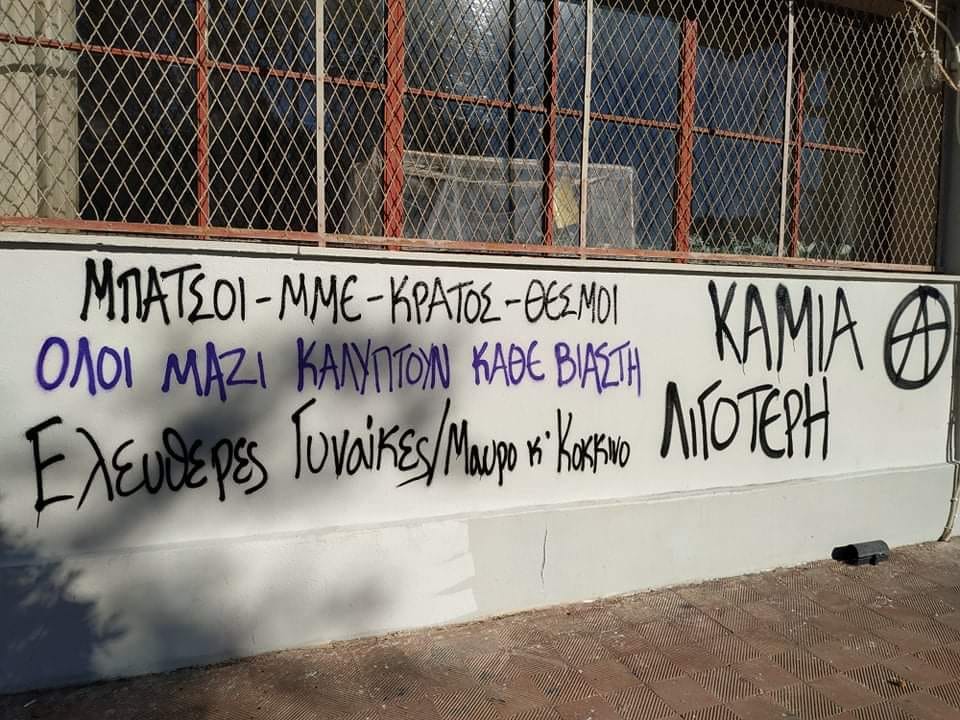 ΜΠΑΤΣΟΙ-ΜΜΕ-ΚΡΑΤΟΣ-ΘΕΣΜΟΙ
ΟΛΟΙ ΜΑΖΙ ΚΑΛΥΠΤΟΥΝ ΚΑΘΕ ΒΙΑΣΤΗ
Ελευθερες Γυναίκες/Μαυρο κ' Κοκκινο
ΚΑΜΙΑ Ⓐ
ΛΙΓΟΤΕΡΗ